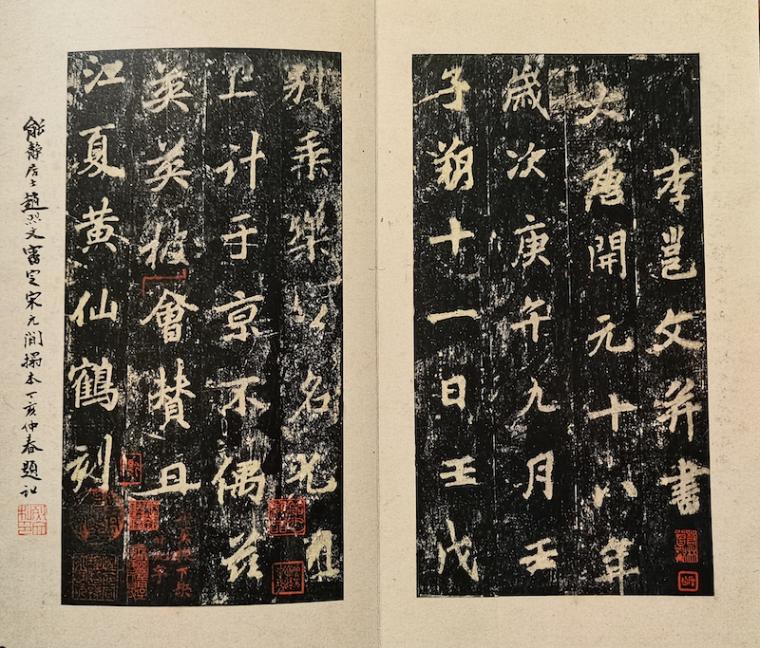 李邕文并書
大唐開元十八年
歲次庚午九月壬
子朔十一日壬戌
别乘樂公名光
上計于京不偶兹
英英披會賛且
江夏黄仙鶴刻
能静居士趙烈文審定宋元間搨本丁亥仲春題記